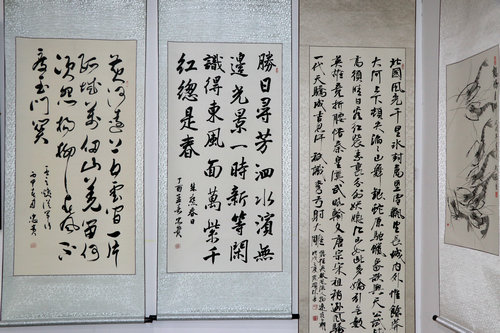 黄河遠上白雲間一片
孤城萬仞山羌笛何
須怨楊柳春風不
度玉門關
勝日尋芳泗水濱無
邊光景一時新等閑
識得東風面萬紫千
紅總是春
朱熹春日
丁酉孟春忠貴
北國風光千里冰封萬里雪飄望長城内外惟餘莽莽
大河上下頓失滔滔山舞銀蛇原馳蠟象欲與天公試比
高須晴日看紅裝素裹分外妖嬈江山如此多嬌引無數
英雄竟折腰惜秦皇漢武略輸文采唐宗宋祖稍遜風騷
一代天驕成吉思汗只識彎弓射大雕